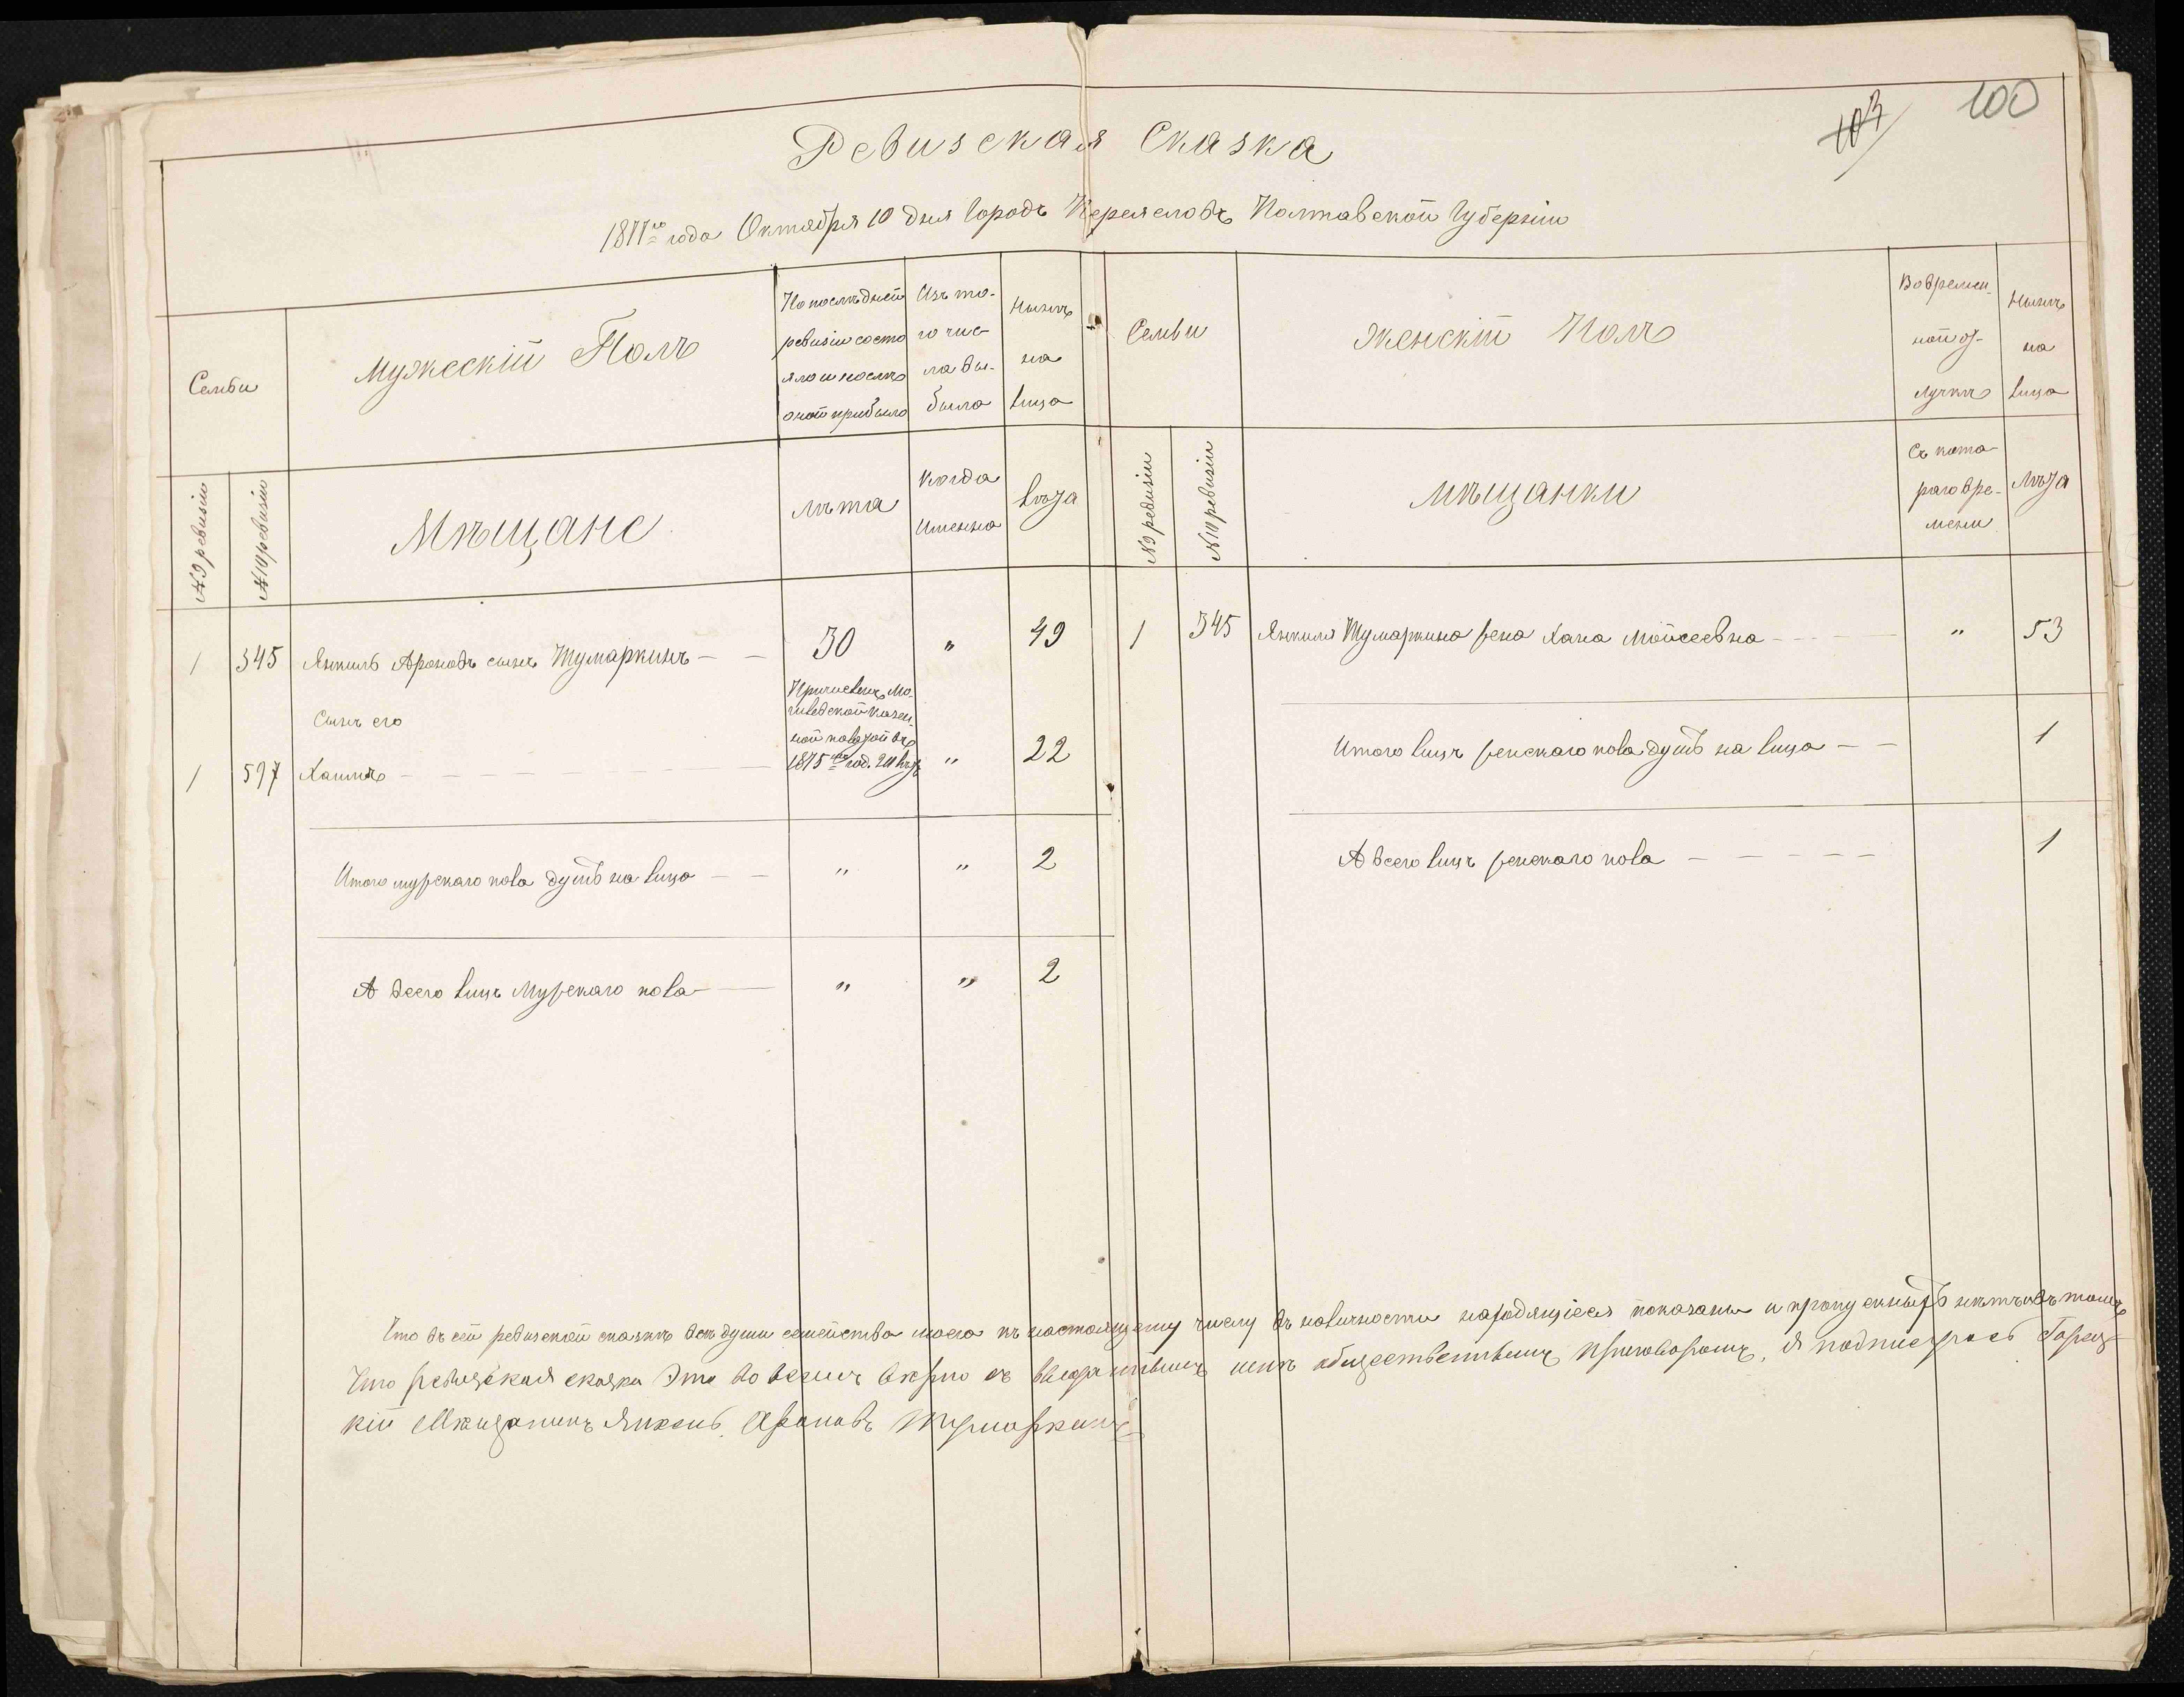 103 100
Ревизская Сказка
1877го года Октября 10 дня Городъ Переяславъ Полтавской Губерніи
Семьи
Мужескій Полъ
По послѣдней
ревизіи состо
яло и послѣ
оной прибыло
Изъ то-
го чис-
ла вы-
было
Нынѣ
на
лицо
Семьи
Женскій Полъ
Во времен-
ной от-
лучкѣ
Нынѣ
на
лицо
№ 9 ревизіи
№ 10 ревизіи
Мѣщане
лѣта
когда
Именно
лѣта
№ 9 ревизіи
№ 10 ревизіи
Мѣщанки
Съ кото-
раго вре-
мени
Лѣта
1 345 Янкиль Ароновъ сынъ Тумаркинъ — — 30 " 49
Сынъ его
1 597 Хаимъ
Причисленъ Мо-
гилевской казен-
ной палатой въ
1875мъ год. 20 лѣтъ
" 22
Итого мужскаго пола душъ на лицо — — " " 2
А всего лицъ Мужскаго пола " " 2
1 345 Янкиля Тумаркина жена Хана Мойсеевна " 53
Итого лицъ женскаго пола душъ на лицо — — 1
А всего лицъ женскаго пола 1
Что въ сей ревизской сказкѣ всѣ души семейства моего къ настоящему числу въ наличности находящіеся показаны и пропущенныхъ нѣтъ въ томъ
Что ревизская сказка Это во всемъ съ общественнымъ приговоромъ, я подписуюсь
кій Мещанинъ Янкель Ароновъ Тумаркинъ